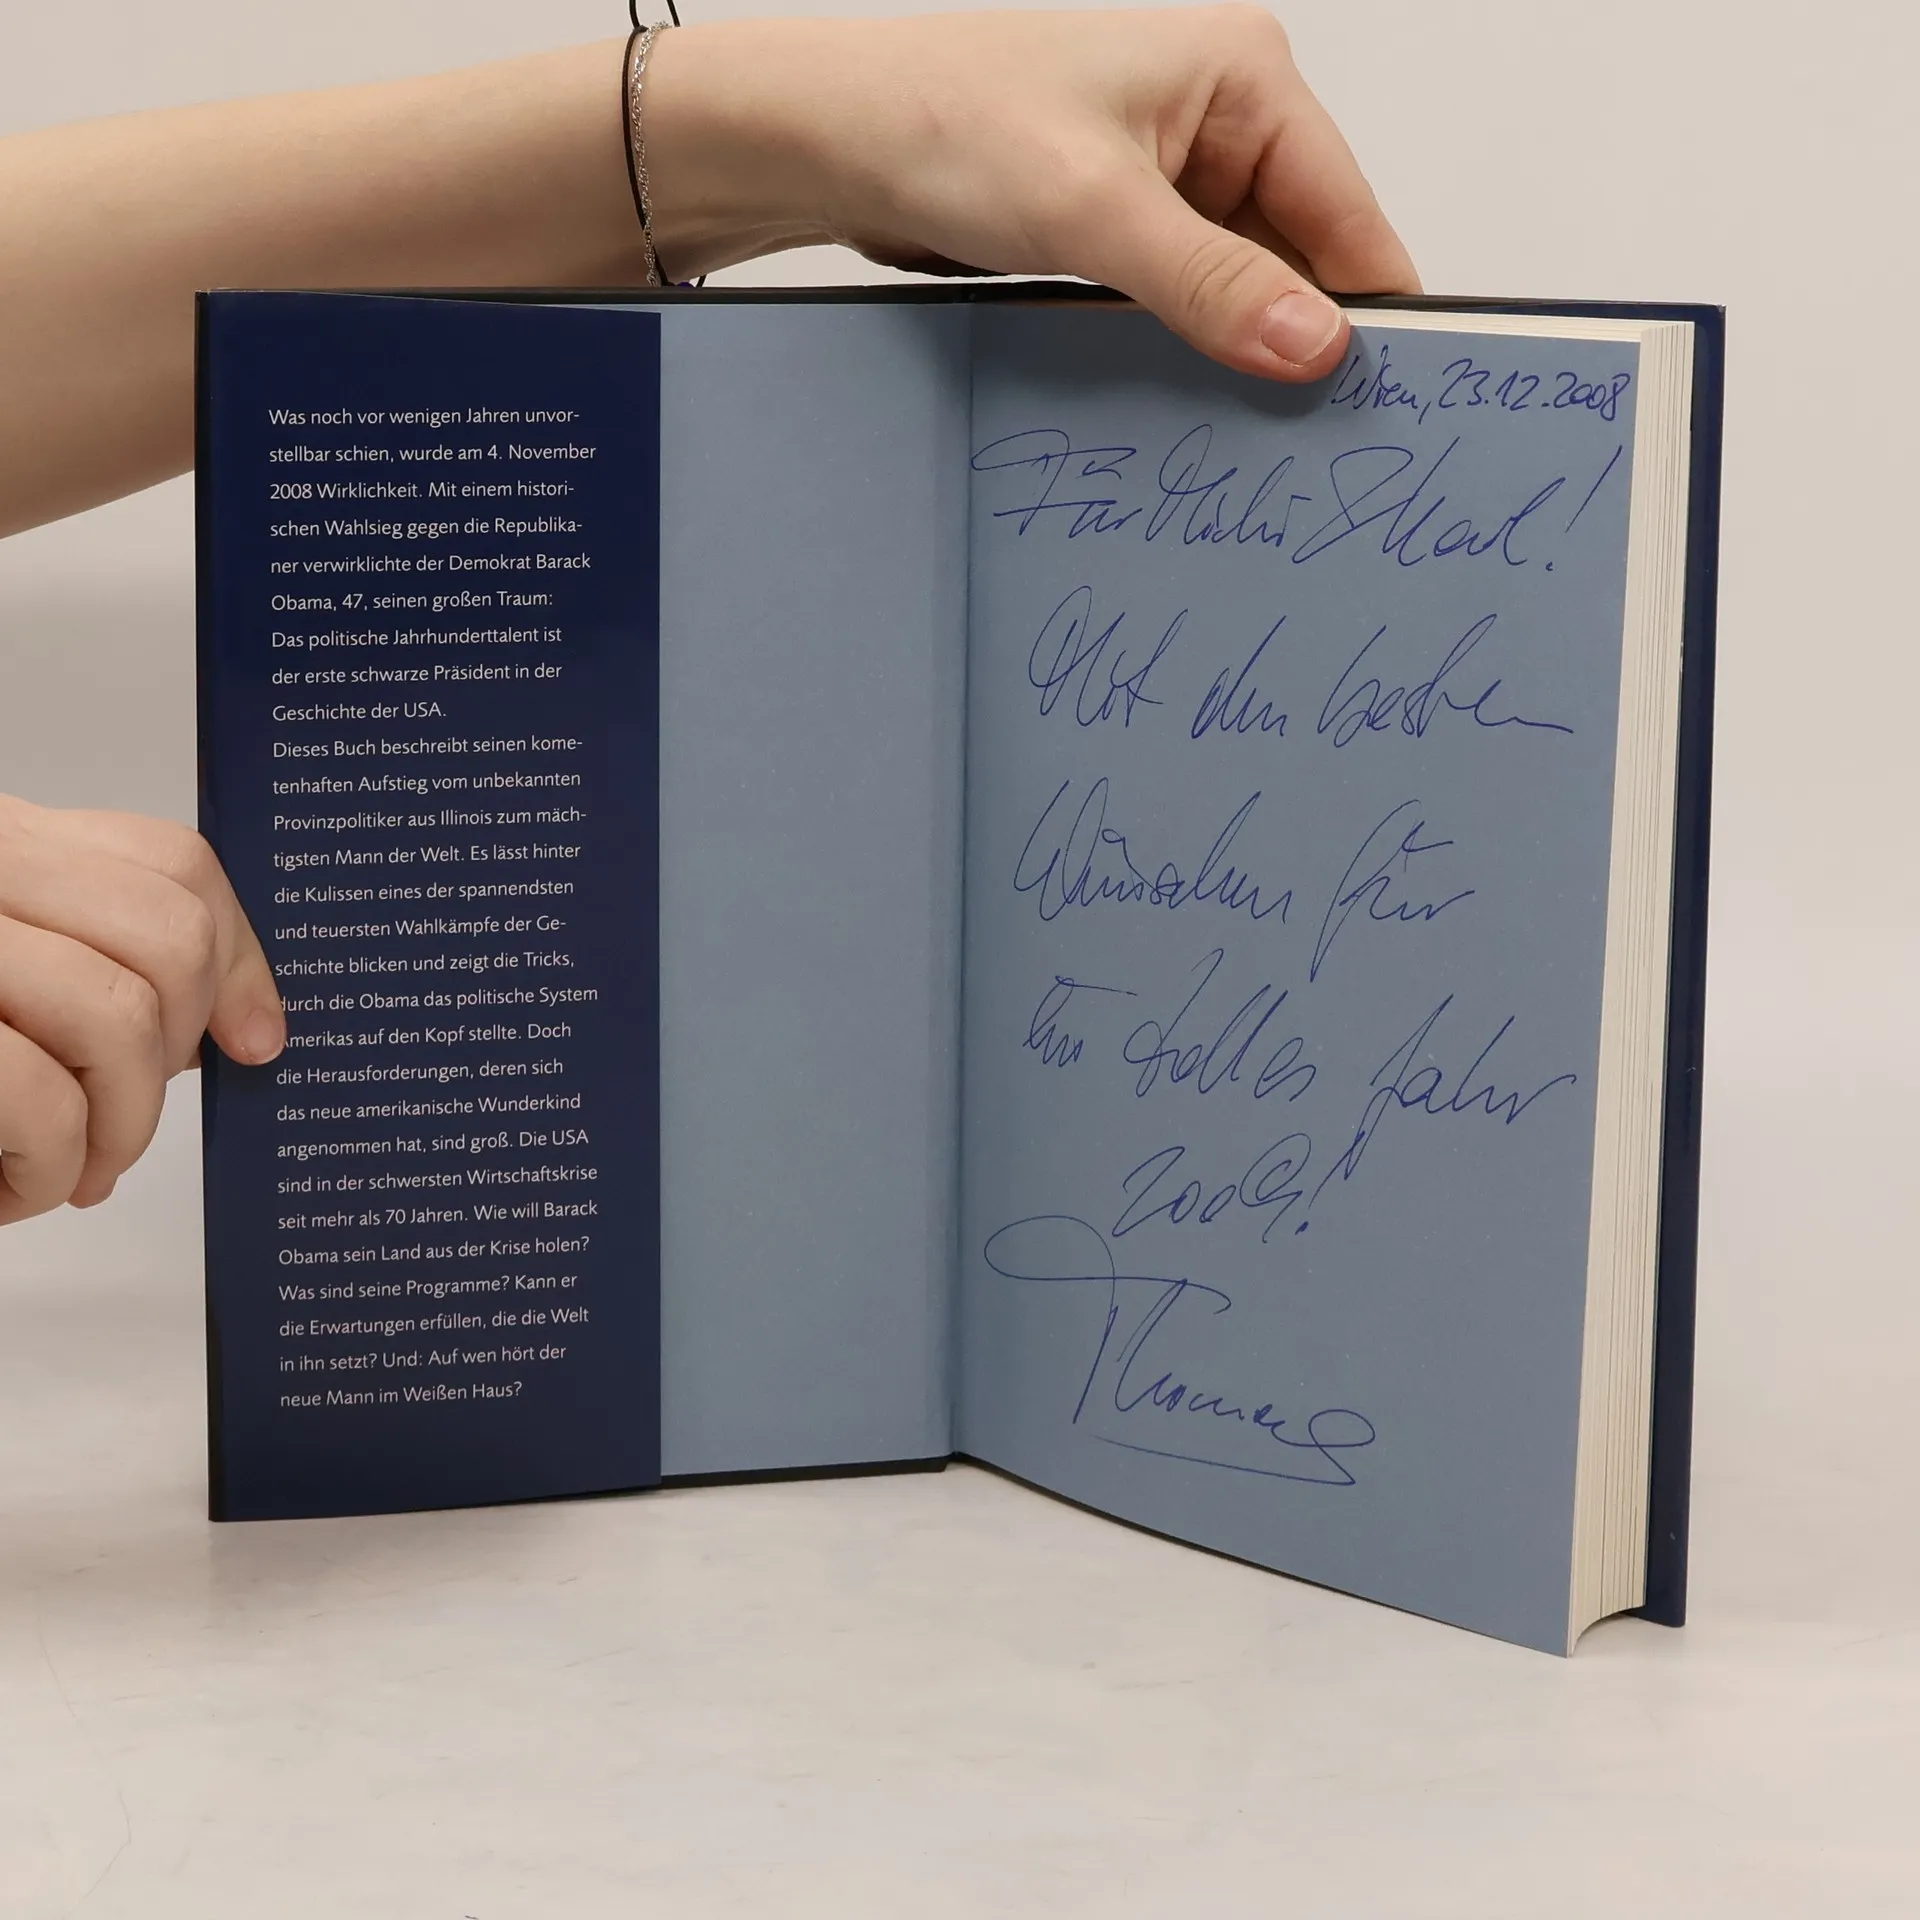 Was noch vor wenigen Jahren unvor-
stellbar schien, wurde am 4. November
2008 Wirklichkeit. Mit einem histori-
schen Wahlsieg gegen die Republika-
ner verwirklichte der Demokrat Barack
Obama, 47, seinen großen Traum:
Das politische Jahrhunderttalent ist
der erste schwarze Präsident in der
Geschichte der USA.
Dieses Buch beschreibt seinen kome-
tenhaften Aufstieg vom unbekannten
Provinzpolitiker aus Illinois zum mäch-
tigsten Mann der Welt. Es lässt hinter
die Kulissen eines der spannendsten
und teuersten Wahlkämpfe der Ge-
schichte blicken und zeigt die Tricks,
durch die Obama das politische System
Amerikas auf den Kopf stellte. Doch
die Herausforderungen, deren sich
das neue amerikanische Wunderkind
angenommen hat, sind groß. Die USA
sind in der schwersten Wirtschaftskrise
seit mehr als 70 Jahren. Wie will Barack
Obama sein Land aus der Krise holen?
Was sind seine Programme? Kann er
die Erwartungen erfüllen, die die Welt
in ihn setzt? Und: Auf wen hört der
neue Mann im Weißen Haus?
Wien, 23.12.2008
Für
Mit den besten
Wünschen für
ein tolles Jahr
2009!
Thomas